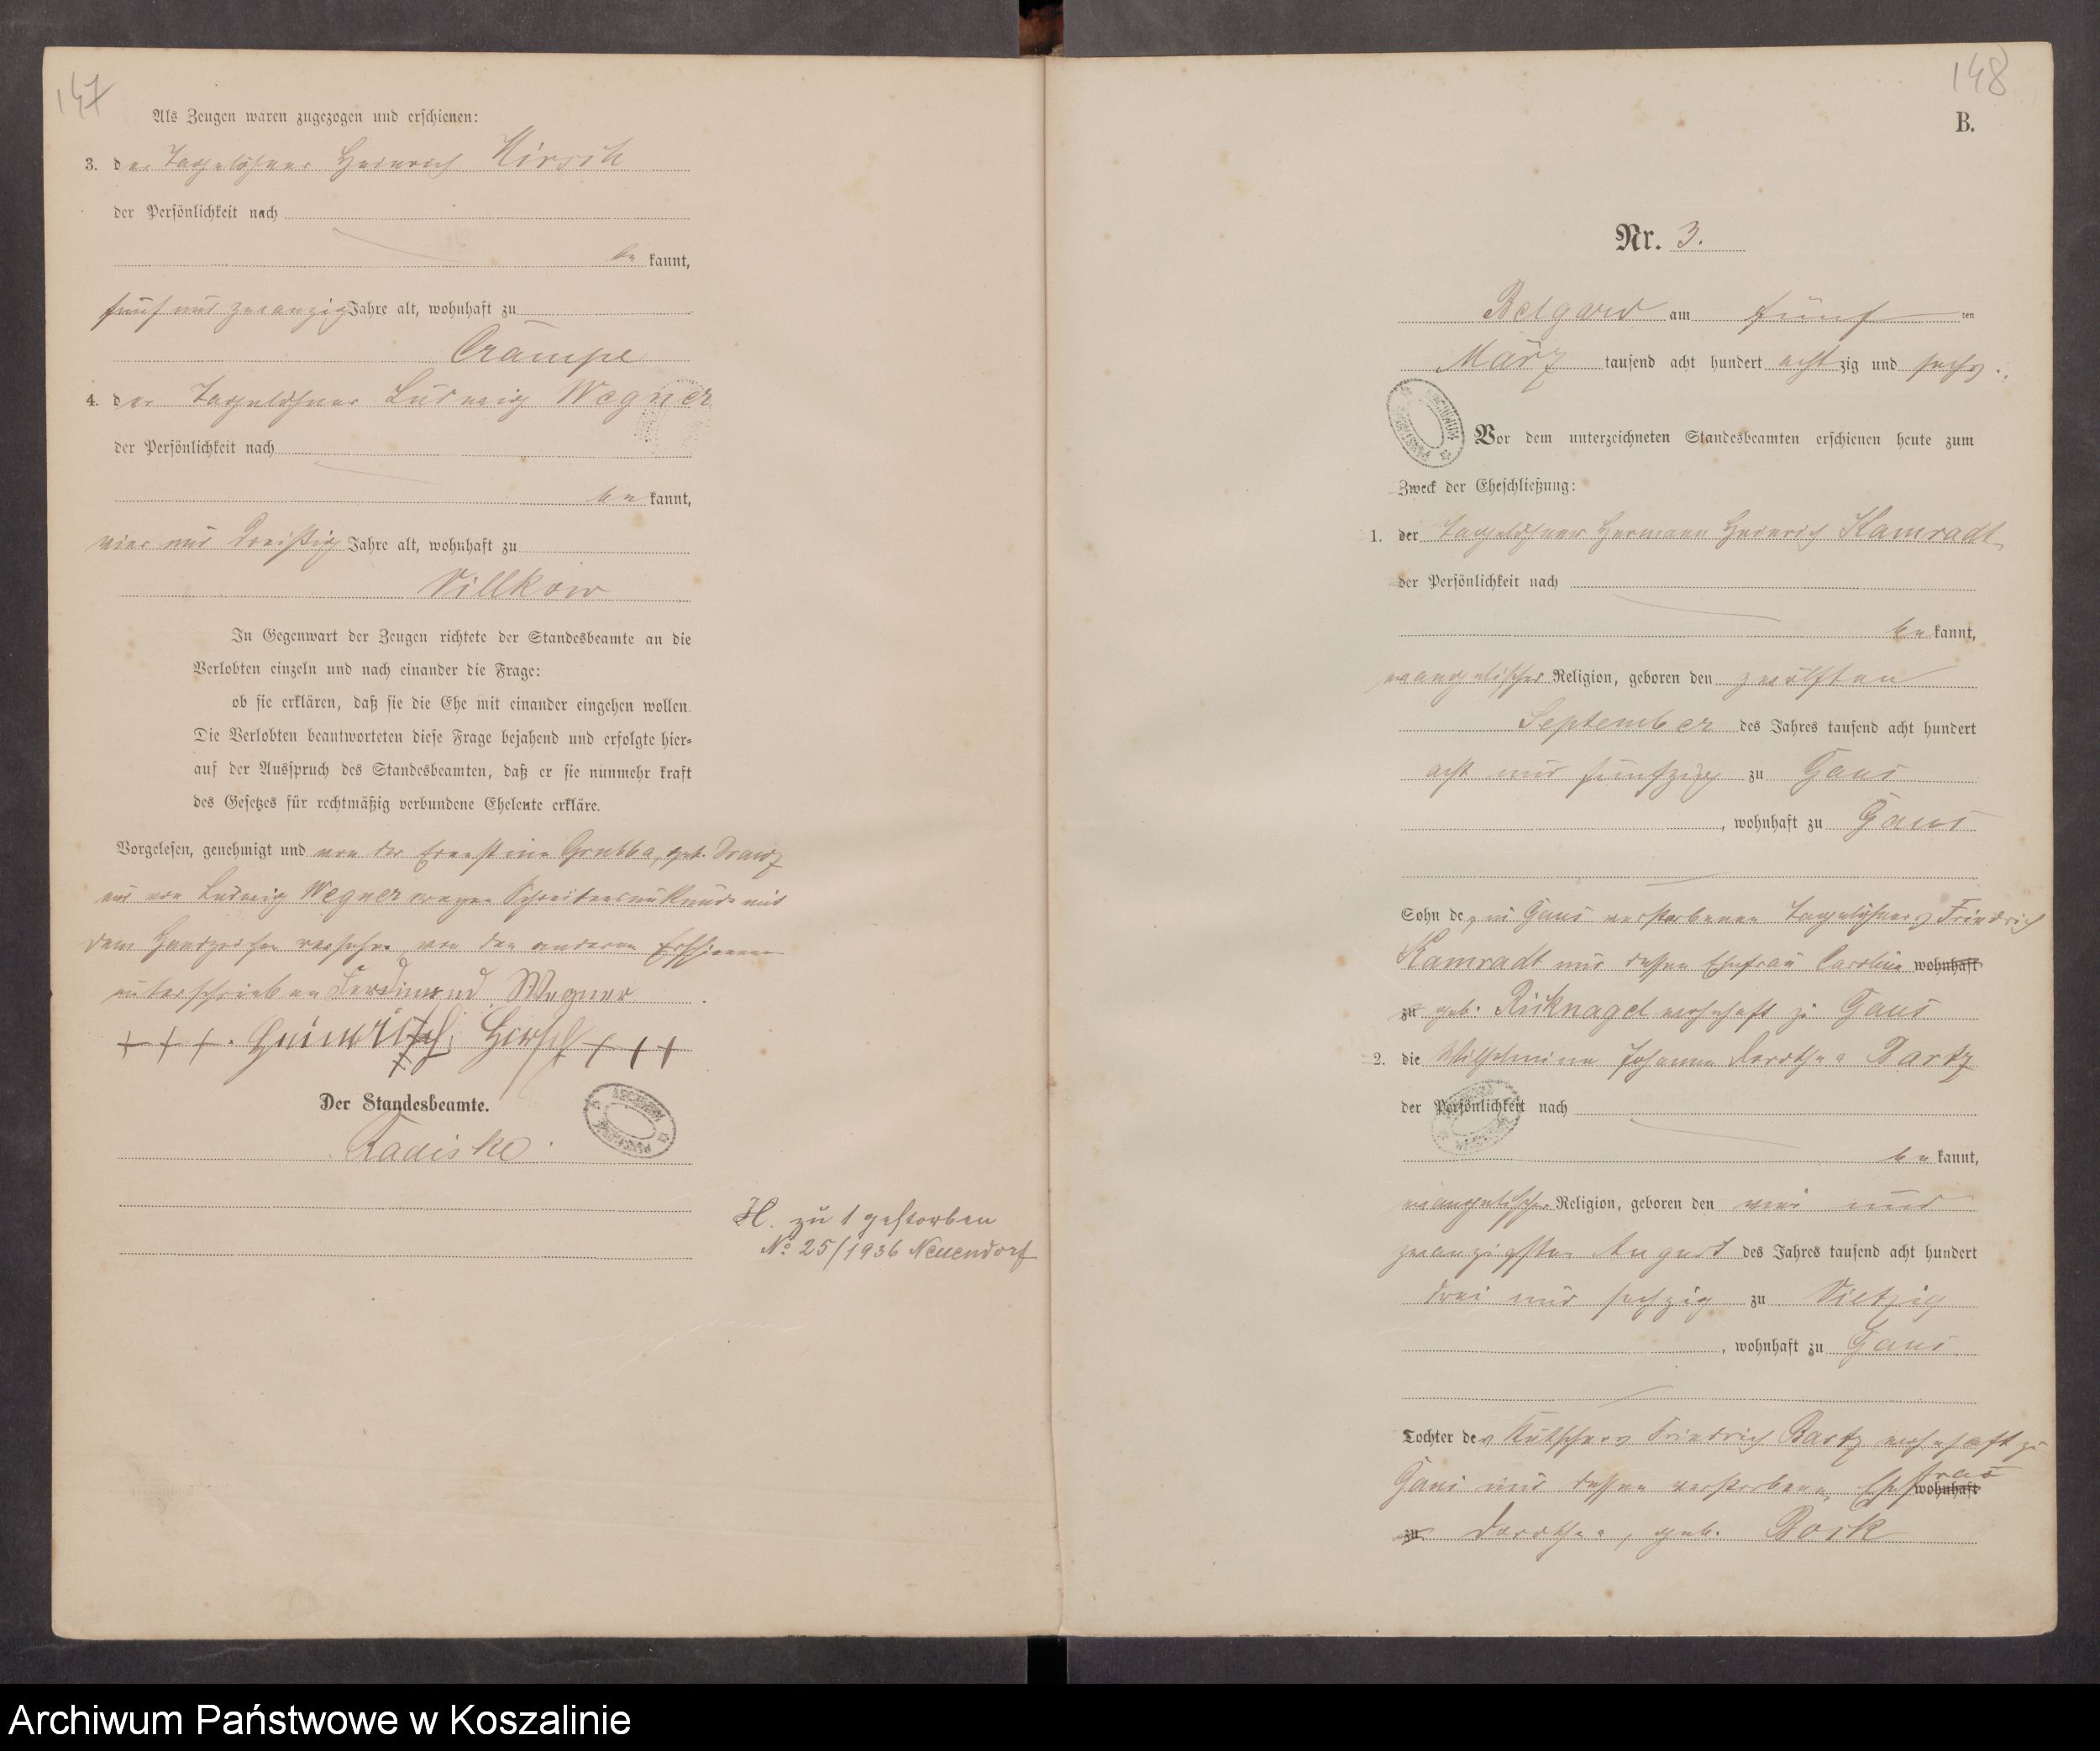 147
Als Zeugen waren zugezogen und erschienen:
3. der Tagelöhner Heinrich Hirsch
der Persönlichkeit nach
be kannt,
fünf und zwanzig Jahre alt, wohnhaft zu
Crampe
4. der Tagelöhner Ludwig Wegner
der Persönlichkeit nach
be kannt,
vier und dreißig Jahre alt, wohnhaft zu
Villkow
In Gegenwart der Zeugen richtete der Standesbeamte an die
Verlobten einzeln und nach einander die Frage:
ob sie erklären, daß sie die Ehe mit einander eingehen wollen.
Die Verlobten beantworteten diese Frage bejahend und erfolgte hier-
auf der Ausspruch des Standesbeamten, daß er sie nunmehr kraft
des Gesetzes für rechtmäßig verbundene Eheleute erkläre.
Vorgelesen, genehmigt und von der Ernestine Grubba, geb. Drawz
und von Ludwig Wegner wegen Schreibensunkunde mit
dem Handzeichen versehen von den anderen Erschienenen
unterschrieben Ferdinand Wegner
+ + +. Heinrich Hirsch + + +
Der Standesbeamte.
Radiske.
H. zu 1 gestorben
No 25/1936 Neuendorf
148
B.
Nr. 3.
Belgard am fünf ten
März tausend acht hundert achtzig und sechs.
Vor dem unterzeichneten Standesbeamten erschienen heute zum
Zweck der Eheschließung:
1. der Tagelöhner Hermann Heinrich Kamradt
der Persönlichkeit nach
be kannt,
evangelischer Religion, geboren den zwölften
September des Jahres tausend acht hundert
acht und fünfzig zu Gans
, wohnhaft zu Gans
Sohn des in Gans verstorbenen Tagelöhners Friedrich
Kamradt und dessen Ehefrau Caroline wohnhaft
zu geb. Ricknagel wohnhaft zu Gans
2. die Wilhelmine Johanne Dorothea Bartz
der Persönlichkeit nach
be kannt,
evangelischer Religion, geboren den zwei und
zwanzigsten August des Jahres tausend acht hundert
drei und sechzig zu Vietzig
, wohnhaft zu Gans
Tochter des Kutschers Friedrich Bartz wohnhaft zu
Gans und dessen verstorbenen Ehefrau wohnhaft
zu Dorothea, geb. Bock
Archiwum Państwowe w Koszalinie